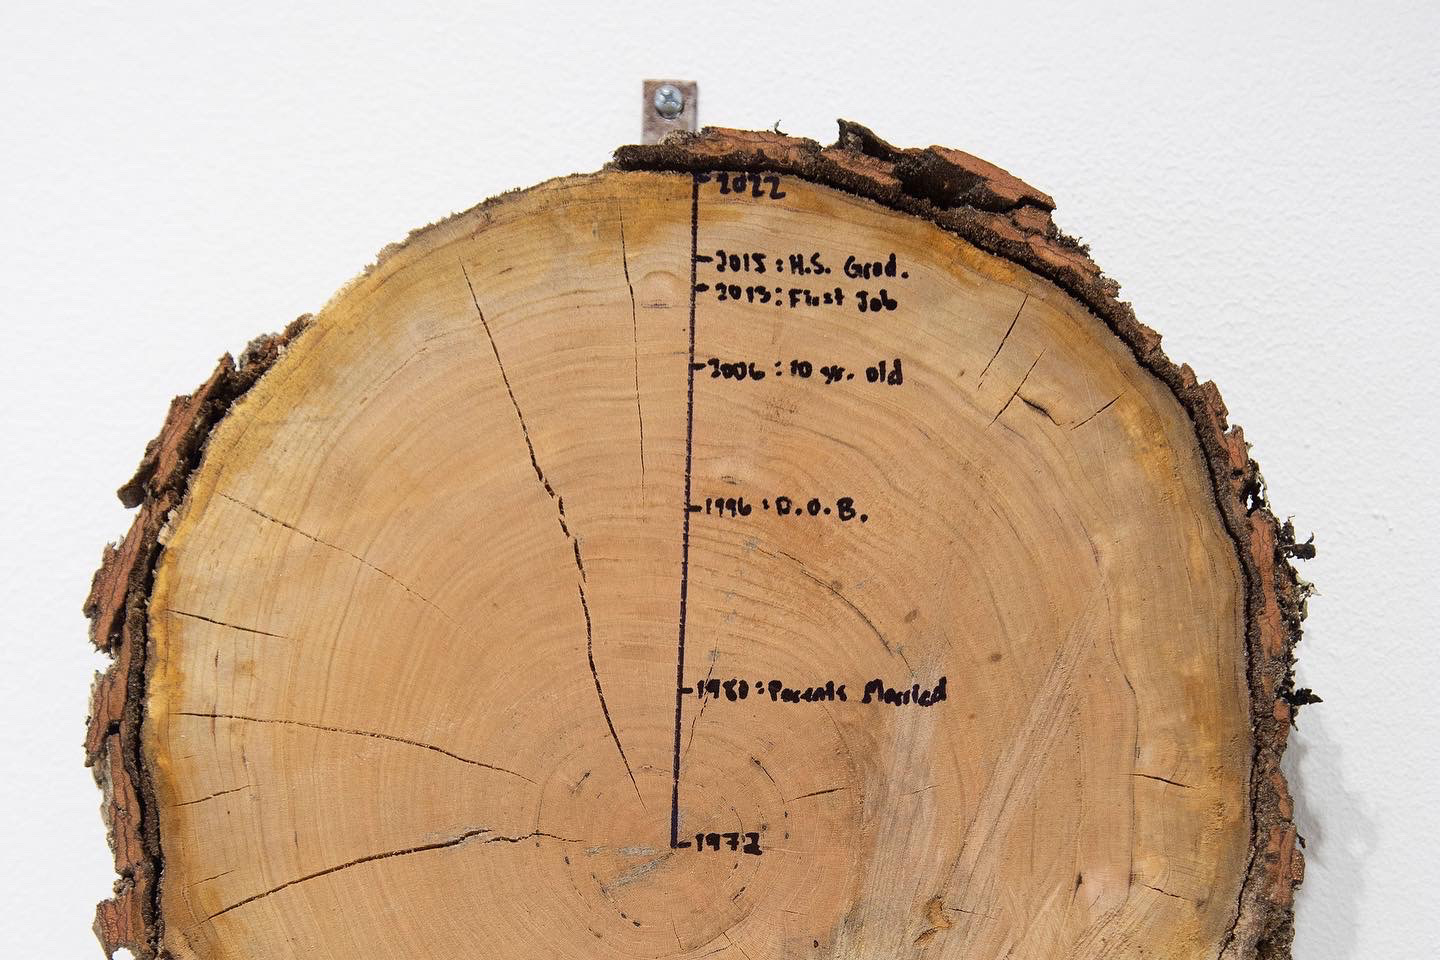 2022
2015 : H.S. Grad.
2013 : First Job
2006 : 10 yr. old
1996 : D.O.B.
: Parents Married
1972